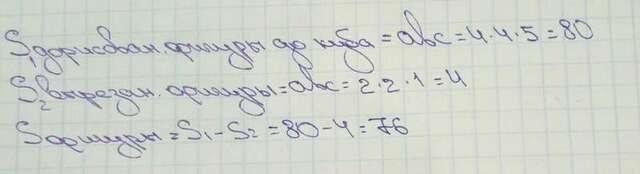 S₁ дорисован. фигуры до куба = abc = 4·4·5 = 80
S₂ вырезан. фигуры = abc = 2·2·1 = 4
S фигуры = S₁ - S₂ = 80 - 4 = 76